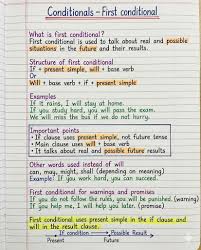 Conditionals - First conditional
What is first conditional?
First conditional is used to talk about real and possible
situations in the future and their results.
Structure of first conditional
If + present simple, will + base verb
Or
Will + base verb + if + present simple
Examples
If it rains, I will stay at home.
If you study hard, you will pass the exam.
We will miss the bus if we do not hurry.
Important points
• If clause uses present simple, not future tense
• Main clause uses will + base verb
• It talks about real and possible future results
Other words used instead of will
can, may, might, shall (depending on meaning)
Example: If you work hard, you can succeed.
First conditional for warnings and promises
If you do not follow the rules, you will be punished. (warning)
If you help me, I will help you later. (promise)
First conditional uses present simple in the if clause and
will in the result clause.
If condition → Possible Result
Present Future